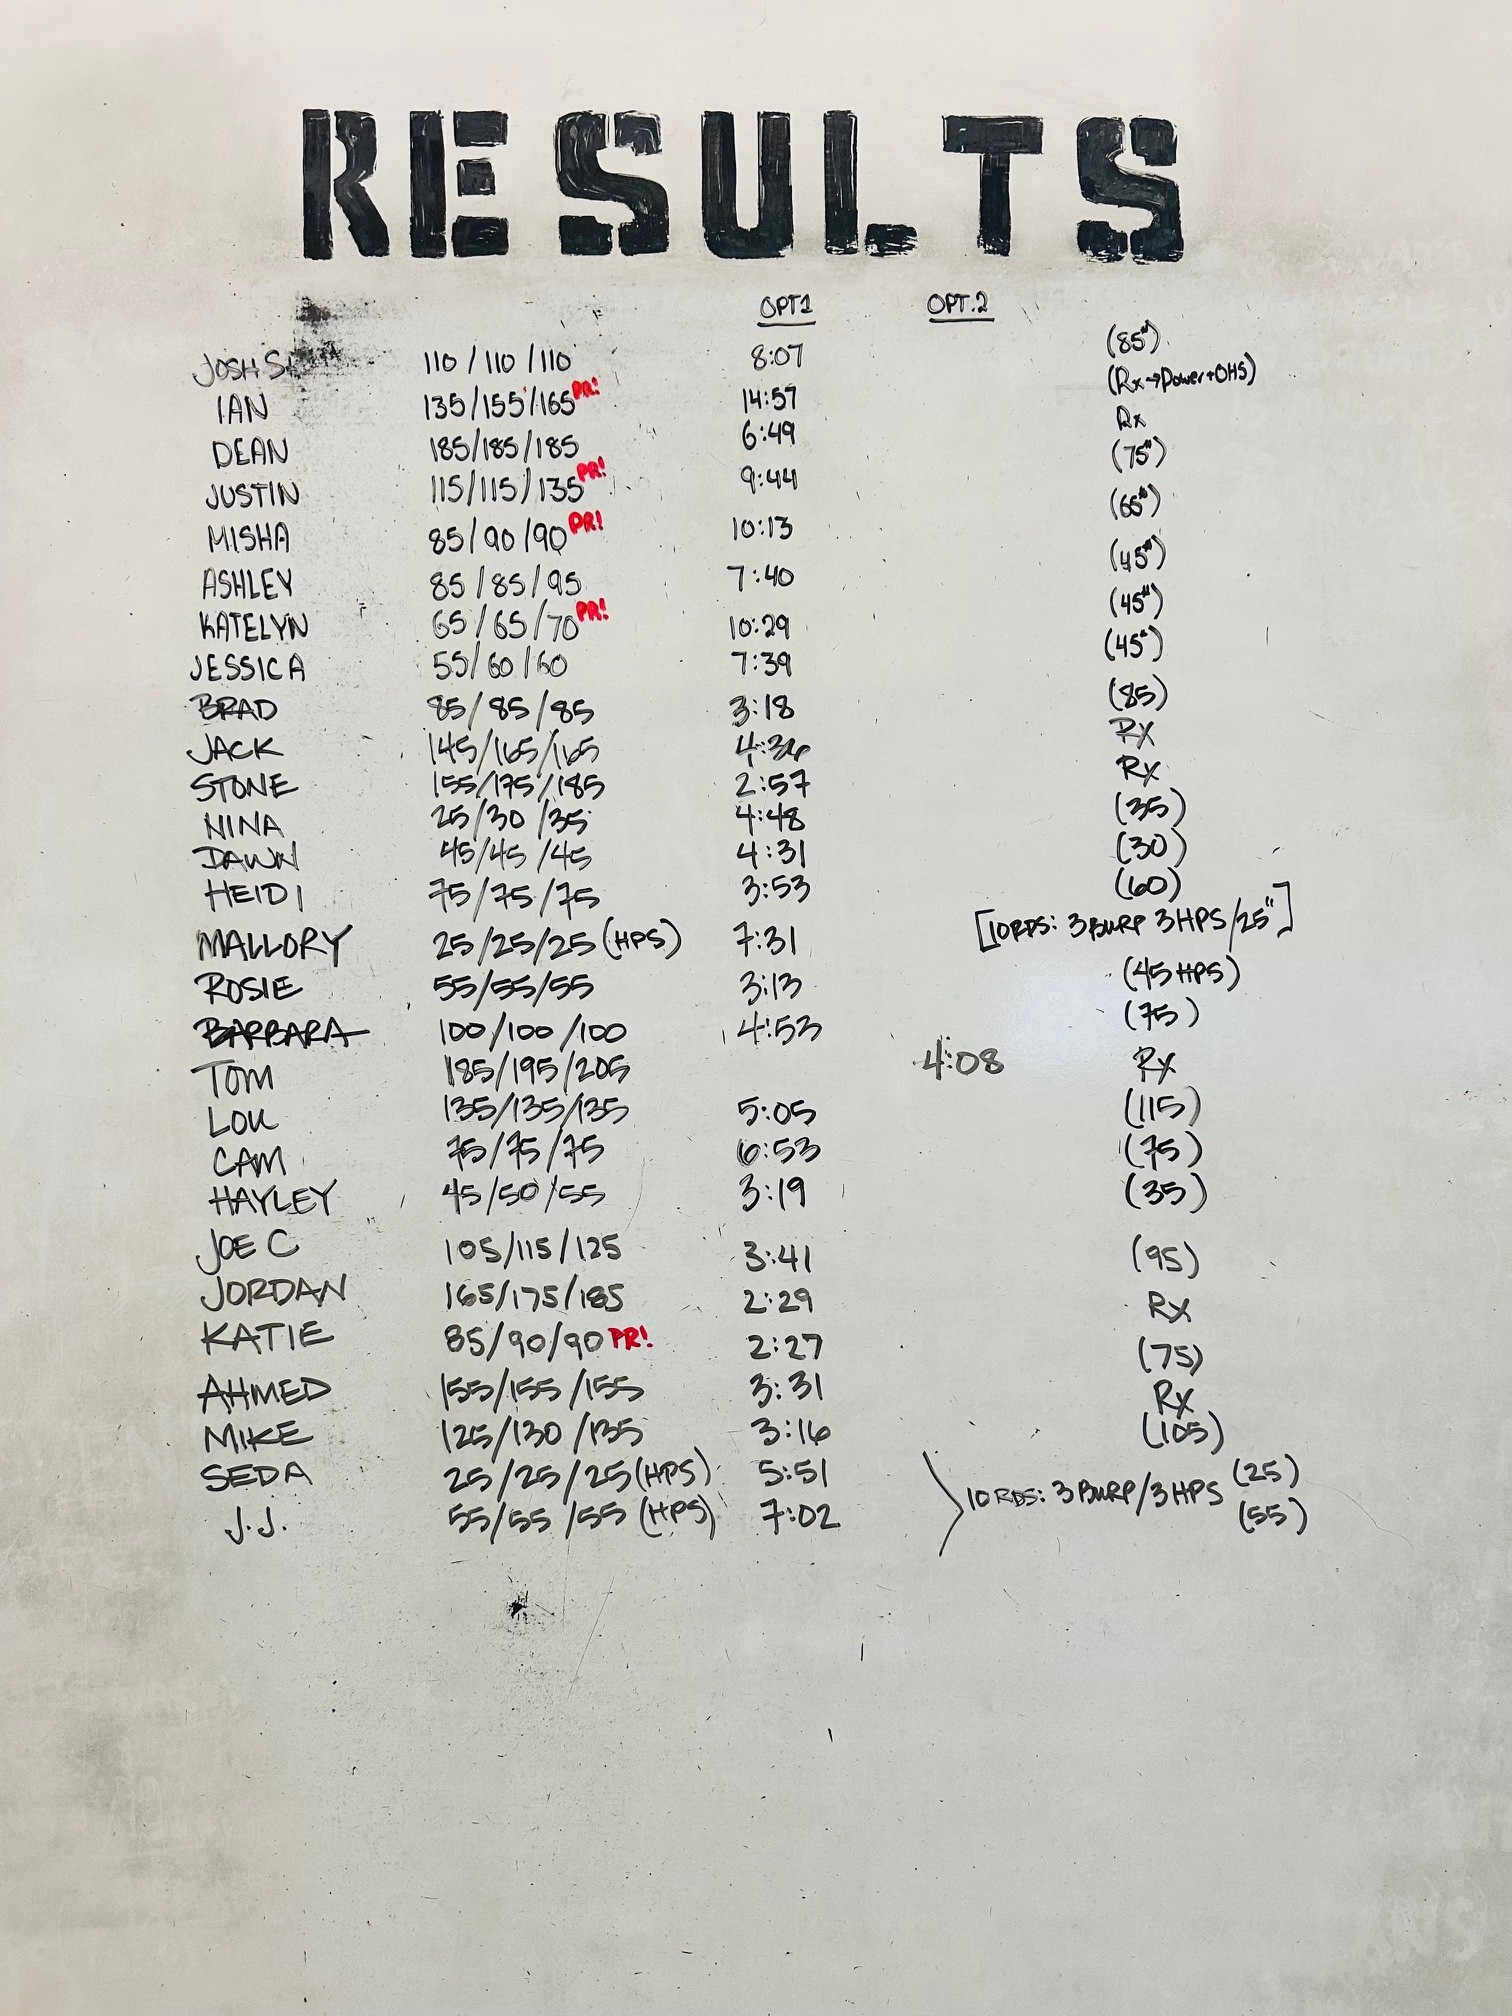 RESULTS
OPT1 OPT.2
JOSH S. 110 / 110 / 110 8:07 (85#)
IAN 135/155/165 PR! 14:57 (Rx→Power+OHS)
DEAN 185/185/185 6:49 Rx
JUSTIN 115/115/135 PR! 9:44 (75#)
MISHA 85/90/90 PR! 10:13 (65#)
ASHLEY 85/85/95 7:40 (45#)
KATELYN 65/65/70 PR! 10:29 (45#)
JESSICA 55/60/60 7:39 (45#)
BRAD 85/85/85 3:18 (85)
JACK 145/165/165 4:36 Rx
STONE 155/175/185 2:57 Rx
NINA 25/30/35 4:48 (35)
DAWN 45/45/45 4:31 (30)
HEIDI 75/75/75 3:53 (60)
MALLORY 25/25/25 (HPS) 7:31 [10RDS: 3 BURP 3 HPS/25"]
ROSIE 55/55/55 3:13 (45 HPS)
BARBARA 100/100/100 4:53 (75)
TOM 185/195/205 4:08 Rx
LOU 135/135/135 5:05 (115)
CAM 75/75/75 6:53 (75)
HAYLEY 45/50/55 3:19 (35)
JOE C 105/115/125 3:41 (95)
JORDAN 165/175/185 2:29 Rx
KATIE 85/90/90 PR! 2:27 (75)
AHMED 155/155/155 3:31 Rx
MIKE 125/130/135 3:16 (105)
SEDA 25/25/25 (HPS) 5:51 10 RDS: 3 BURP/3 HPS (25)
J.J. 55/55/55 (HPS) 7:02 (55)